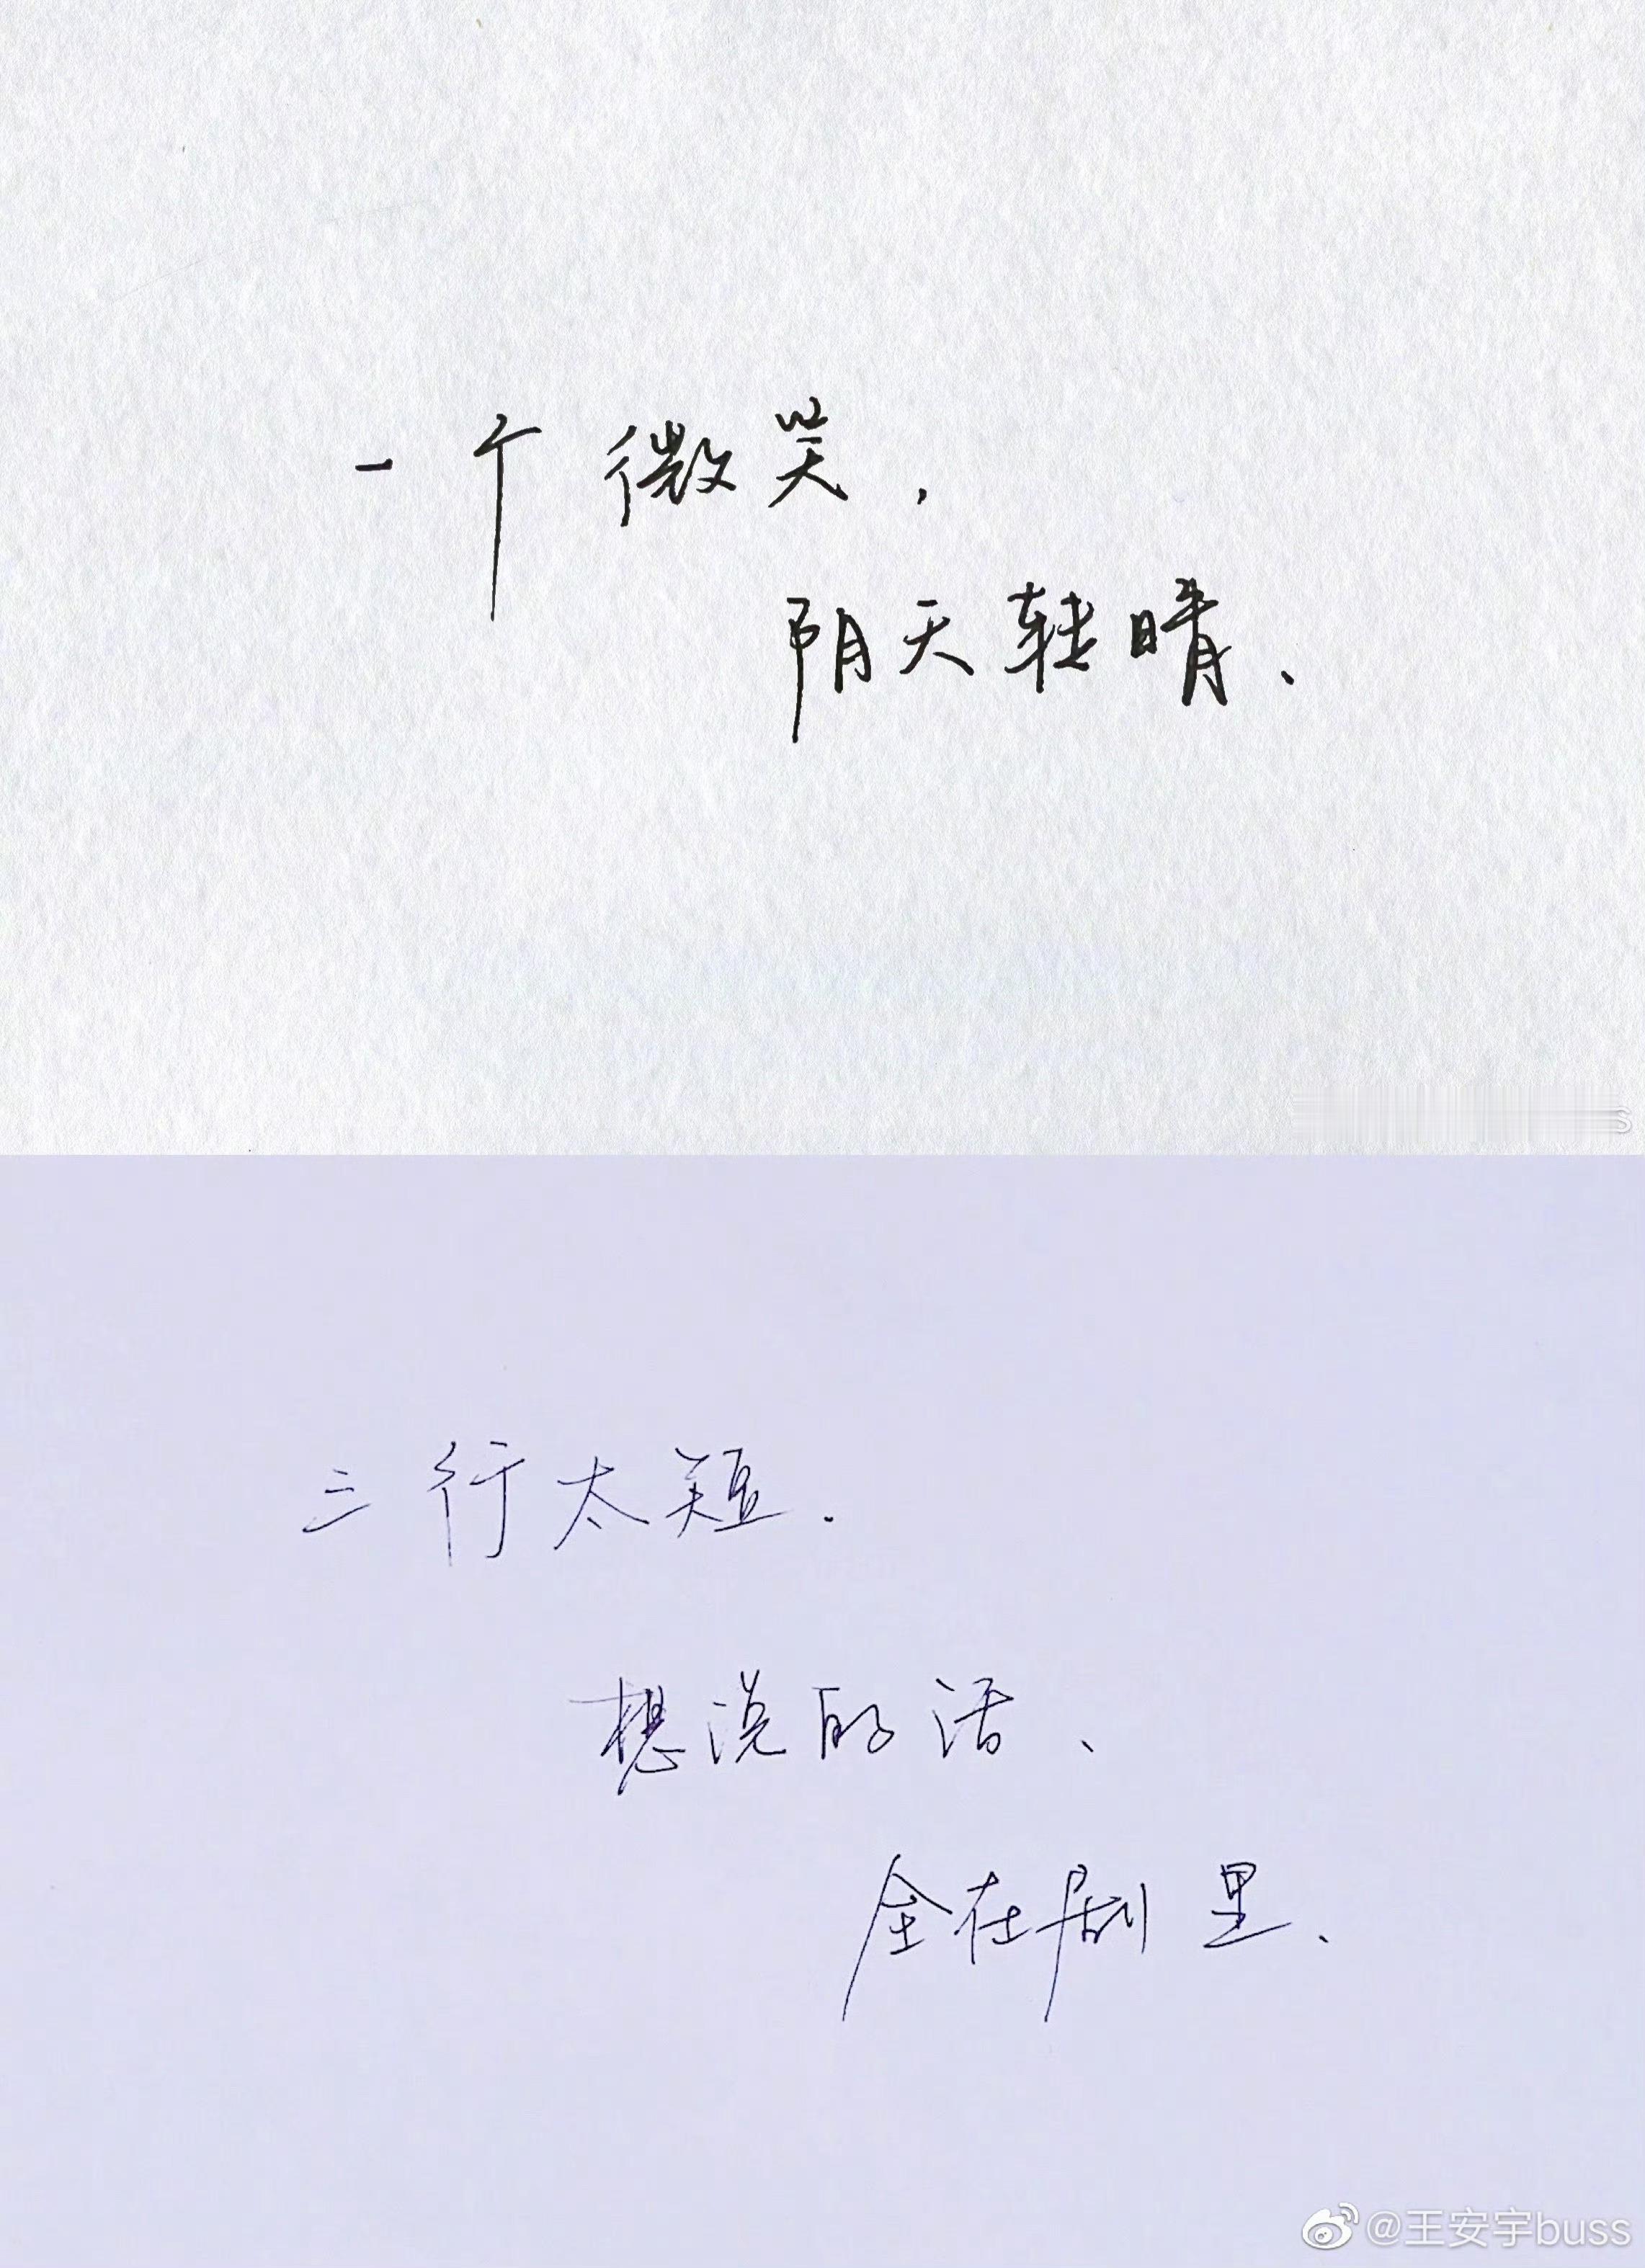 一个微笑，
阴天转晴、
s
三行太短.
想说的话、
全在剧里、
@王安宇buss